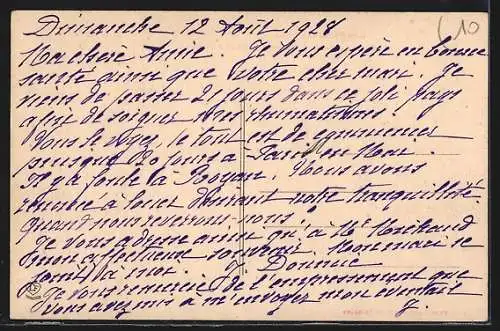 Dimanche 12 Août 1928
Ma chère Amie. Je vous espère en bonne
santé ainsi que votre cher mari. Je
viens de passer 21 jours dans ce joli pays
afin de soigner mes rhumatismes.
Vous le voyez, le tout est de commencer
puisque 20 jours à Paris en Mai.
Il y a foule à Royan. Nous avons
à louer devant notre tranquillité.
Quand nous reverrons-nous?
Je vous adresse ainsi qu'à Mr
mon affectueux souvenir. Mon mari se
joint à moi. J
Je vous remercie de l'empressement que
vous avez mis à m'envoyer mon éventail